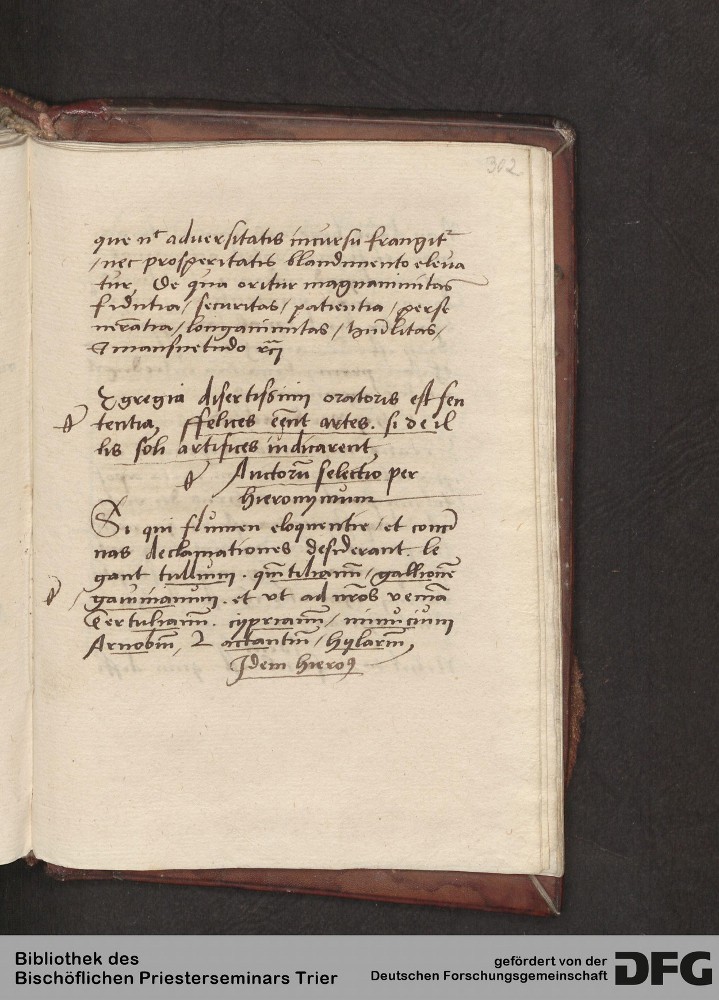 302
que nec adversitatis incursu frangit᷑
/ nec prosperitatis blandimento eleva
tur, De qua oritur magnanimitas
fidutia / securitas / patientia / perse
verātia / longanimitas / humilitas /
& mansuetudo &c
Egregia disertissimi oratoris est sen
tentia, ffelices eēnt artes. si de il
lis soli artifices iudicarent,
Auctorū selectio per
hieronymum
Si qui flumen eloquentie / et conci
nas declamationes desiderant. le
gant tullium. quintilianū / gallionē
/ gavinianum. et ut ad nros veniā
Tertulianū. cyprianū / minucium
Arnobiū, Lactantiū / hylariū,
Idem hieroꝰ
Bibliothek des
Bischöflichen Priesterseminars Trier
gefördert von der
Deutschen Forschungsgemeinschaft DFG